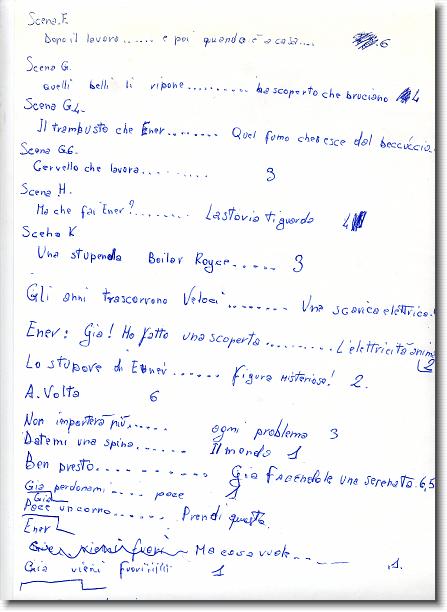 Scena F.
Dopo il lavoro....... e poi quando è a casa.... 6
Scena G.
quelli belli li ripone.......... ha scoperto che bruciano 4
Scena G4.
Il trambusto che Ener......... Quel fumo che esce dal beccuccio.
Scena GG.
Cervello che lavora.......... 3
Scena H.
Ma che fai Ener?........ La storia ti guarda 4
Scena K
Una stupenda Boilar Royce..... 3
Gli anni trascorrono Veloci........ Una scarica elettrica.
Ener: Gia! Ho fatto una scoperta.......... L'elettricità anim
2
Lo stupore di Ener...... figura misteriosa! 2.
A. Volta 6
Non importerà più..... ogni problema 3
Datemi una spina...... Il mondo 1
Ben presto......... Gia facendole una serenata. 6,5
Gia perdonami.... pace 1
Gia
Pace un corno...... Prendi questo.
Ener
Gia vieni fuori Ma cosa vuole...... 1.
Gia vieni fuoriiiiii 1